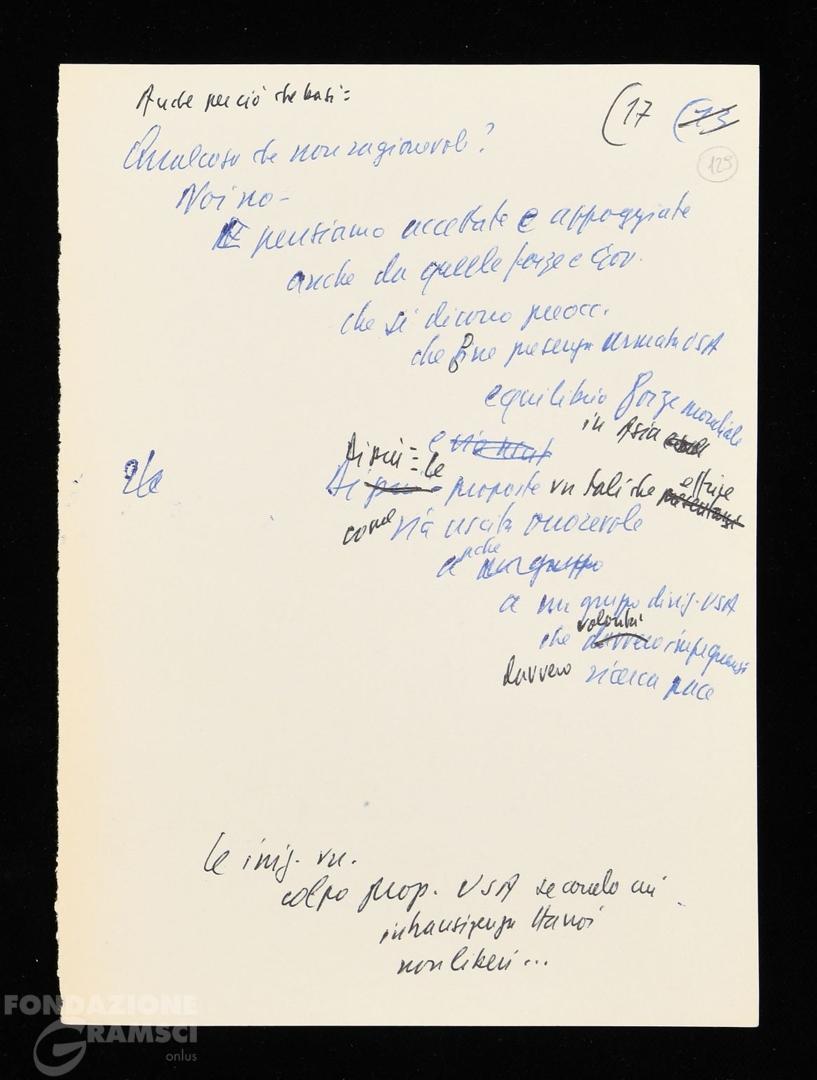 Anche perciò che basi =
(17 (13
129
Qualcosa che non ragionevole?
Noi no -
E pensiamo accettate e appoggiate
anche da quelle forze e Gov.
che si dicono preocc.
che fine presenza armata USA
equilibrio forze mondiale
in Asia
e via
Di più = le
proposte vn tali che offrire
come via uscita onorevole
anche un gruppo
a un gruppo dirig. USA
che volontà
davvero impegnarsi
davvero ricerca pace
le iniz. vn.
colpo prop. USA secondo cui
intransigenza Hanoi
non liberi...
FONDAZIONE
GRAMSCI
onlus